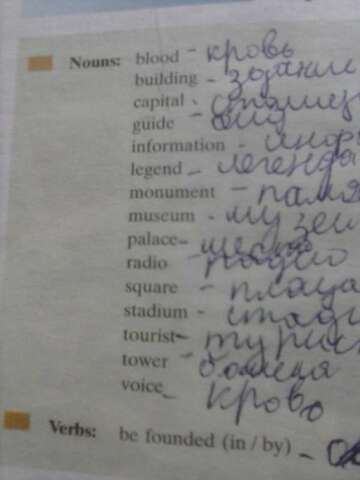 Nouns: blood - кровь
building - здание
capital - столиц
guide - гид
information - инфор
legend - легенда
monument - памя
museum - музей
palace -
radio - радио
square - площа
stadium - стади
tourist - турис
tower - башня
voice - кровь
Verbs: be founded (in / by) -